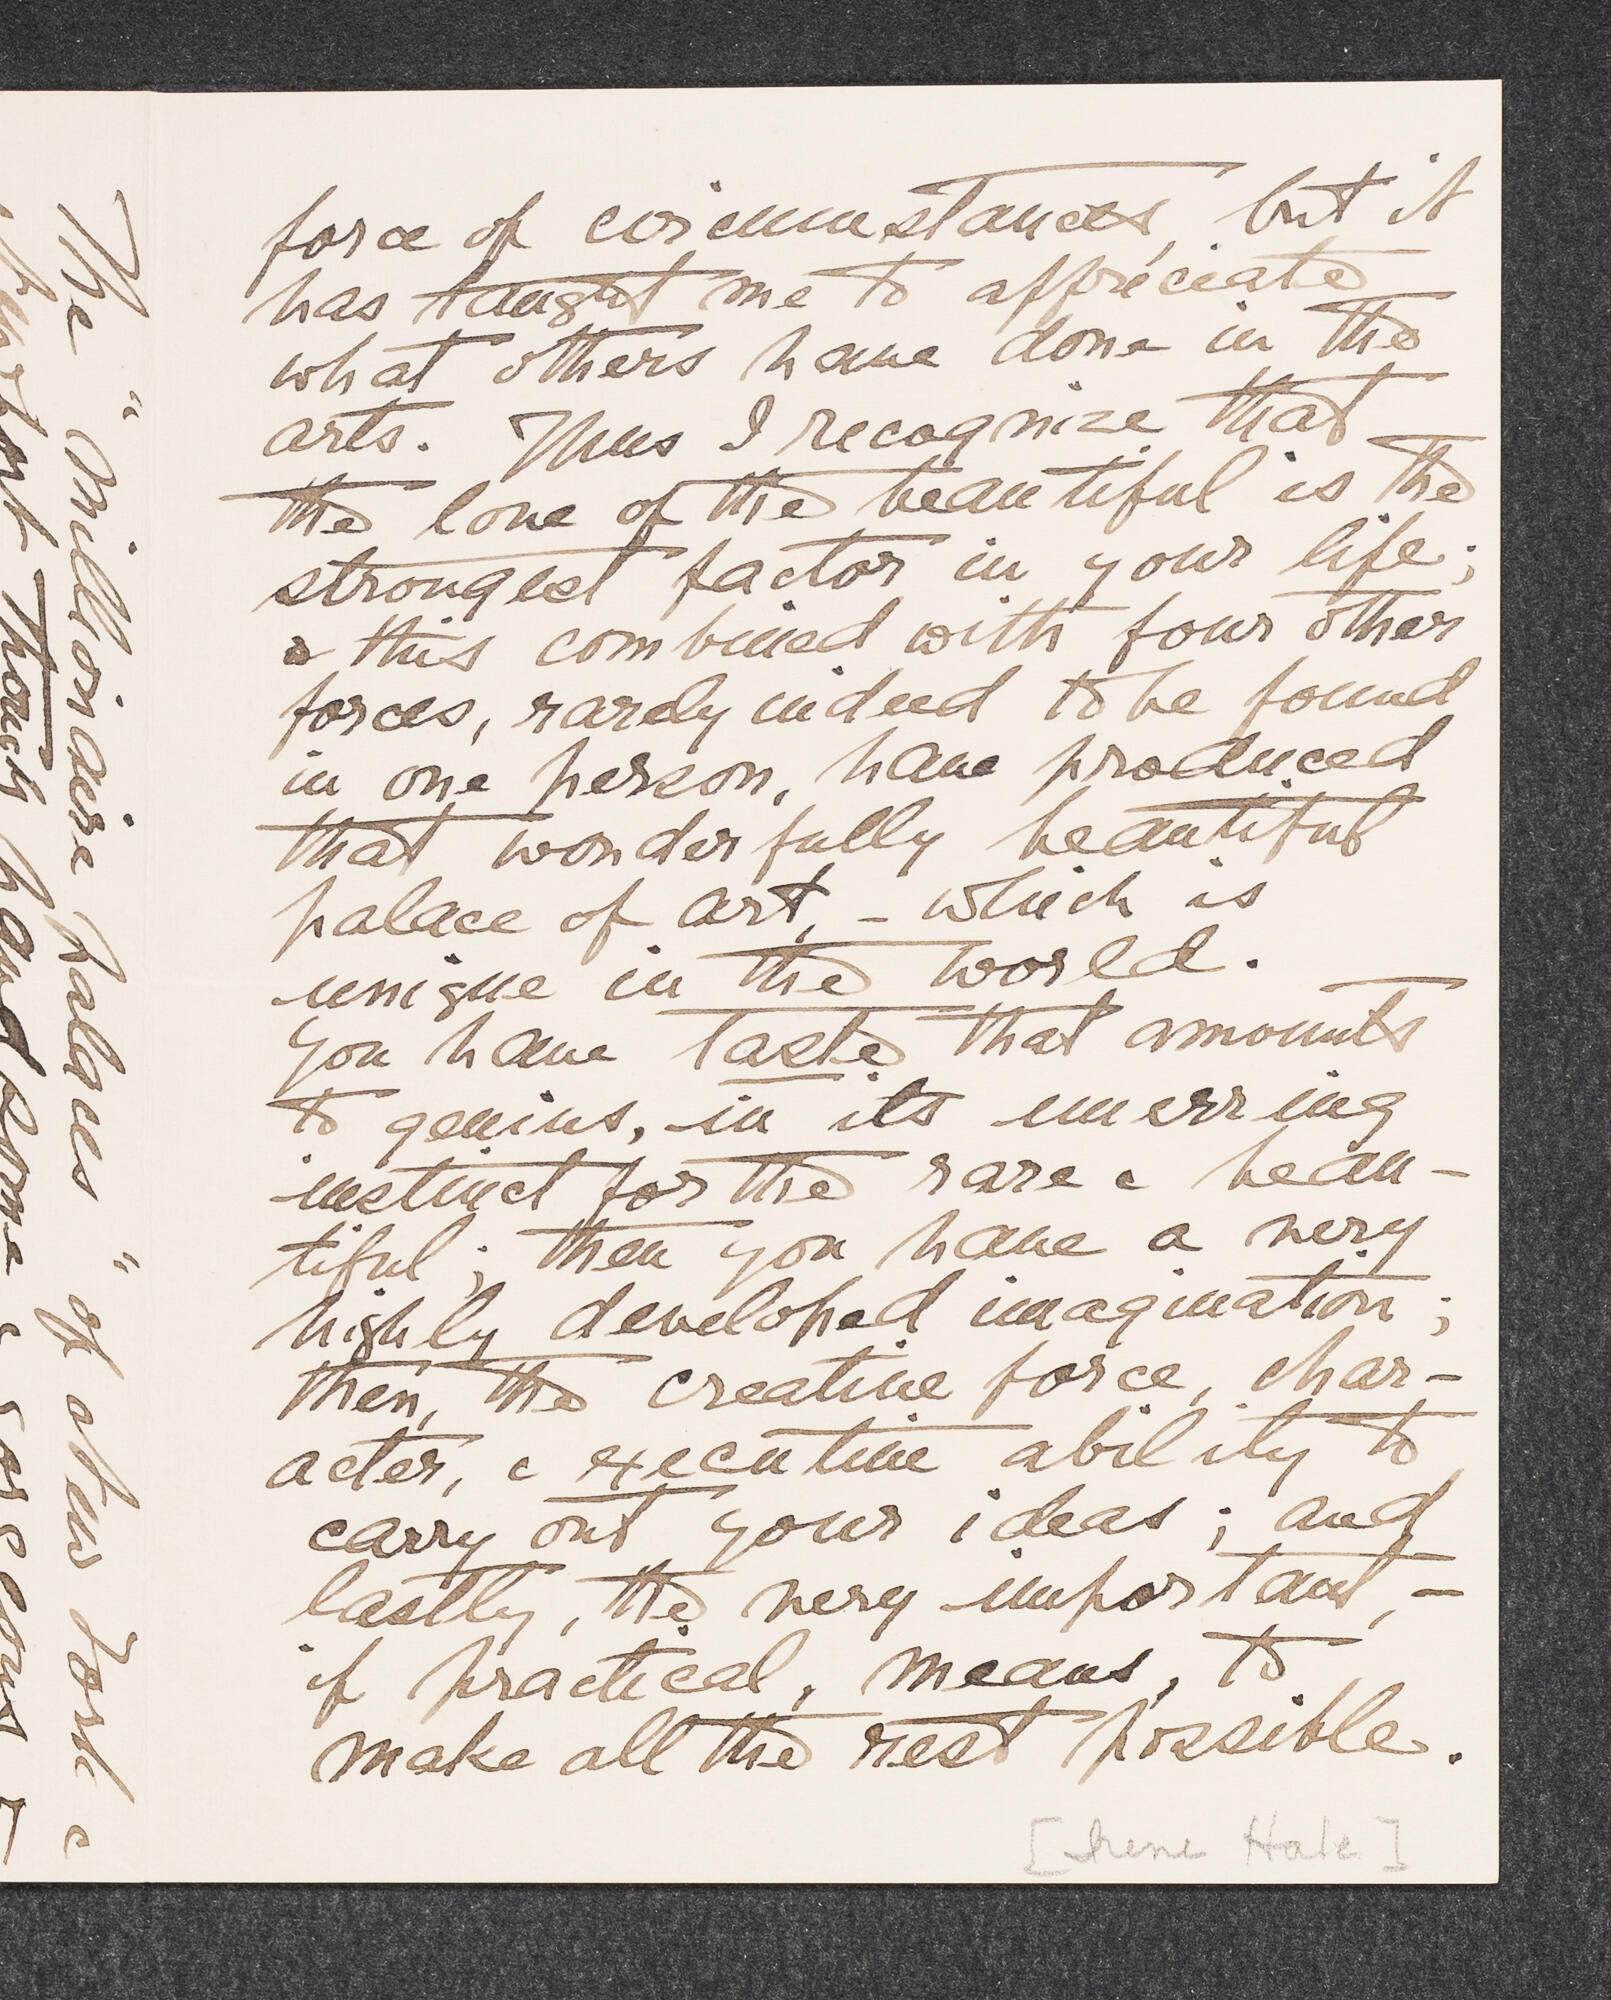 force of circumstances, but it
has taught me to appreciate
what others have done in the
arts. Thus I recognize that
the love of the beautiful is the
strongest factor in your life;
& this combined with four other
forces, rarely indeed to be found
in one person, have produced
that wonderfully beautiful
palace of art, - which is
unique in the world.
You have taste that amounts
to genius, in its unerring
instinct for the rare & beau-
tiful; then you have a very
highly developed imagination;
then, the creative force, char-
acter, & executive ability to
carry out your ideas; and
lastly, the very important, -
if practical, means, to
make all the rest possible.
[Irene Hale]
The "Millionaire palaces" of New York &